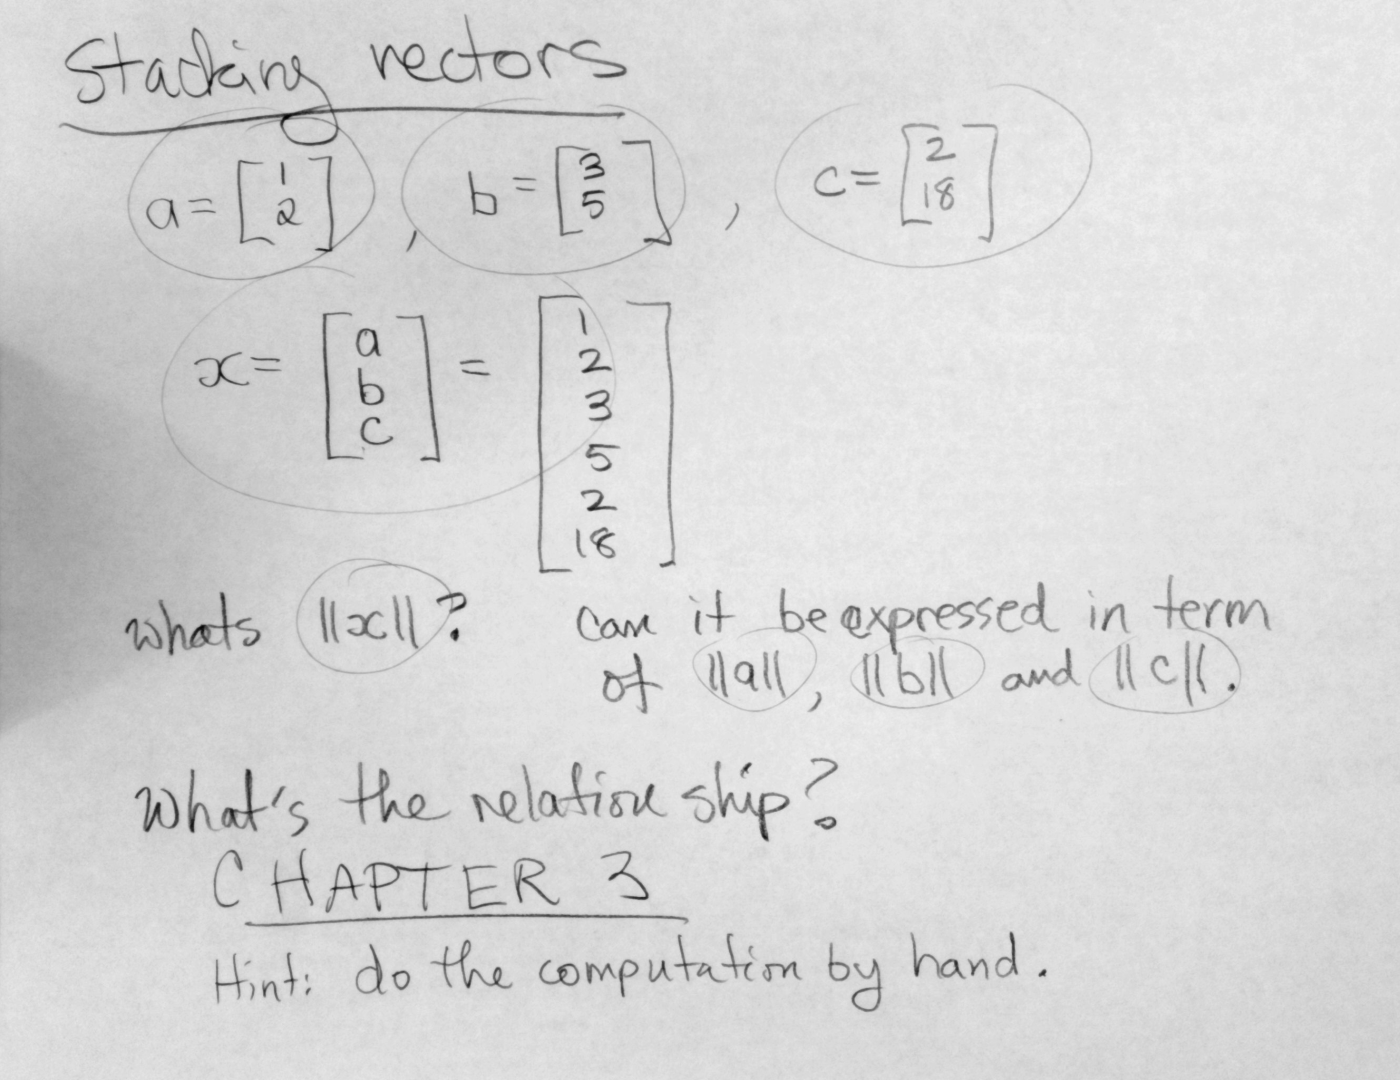 Stacking vectors
a = [1 2], b = [3 5], c = [2 18]
x = [a b c] = [1 2 3 5 2 18]
whats ||x||? can it be expressed in term
of ||a||, ||b|| and ||c||.
What's the relation ship?
CHAPTER 3
Hint: do the computation by hand.